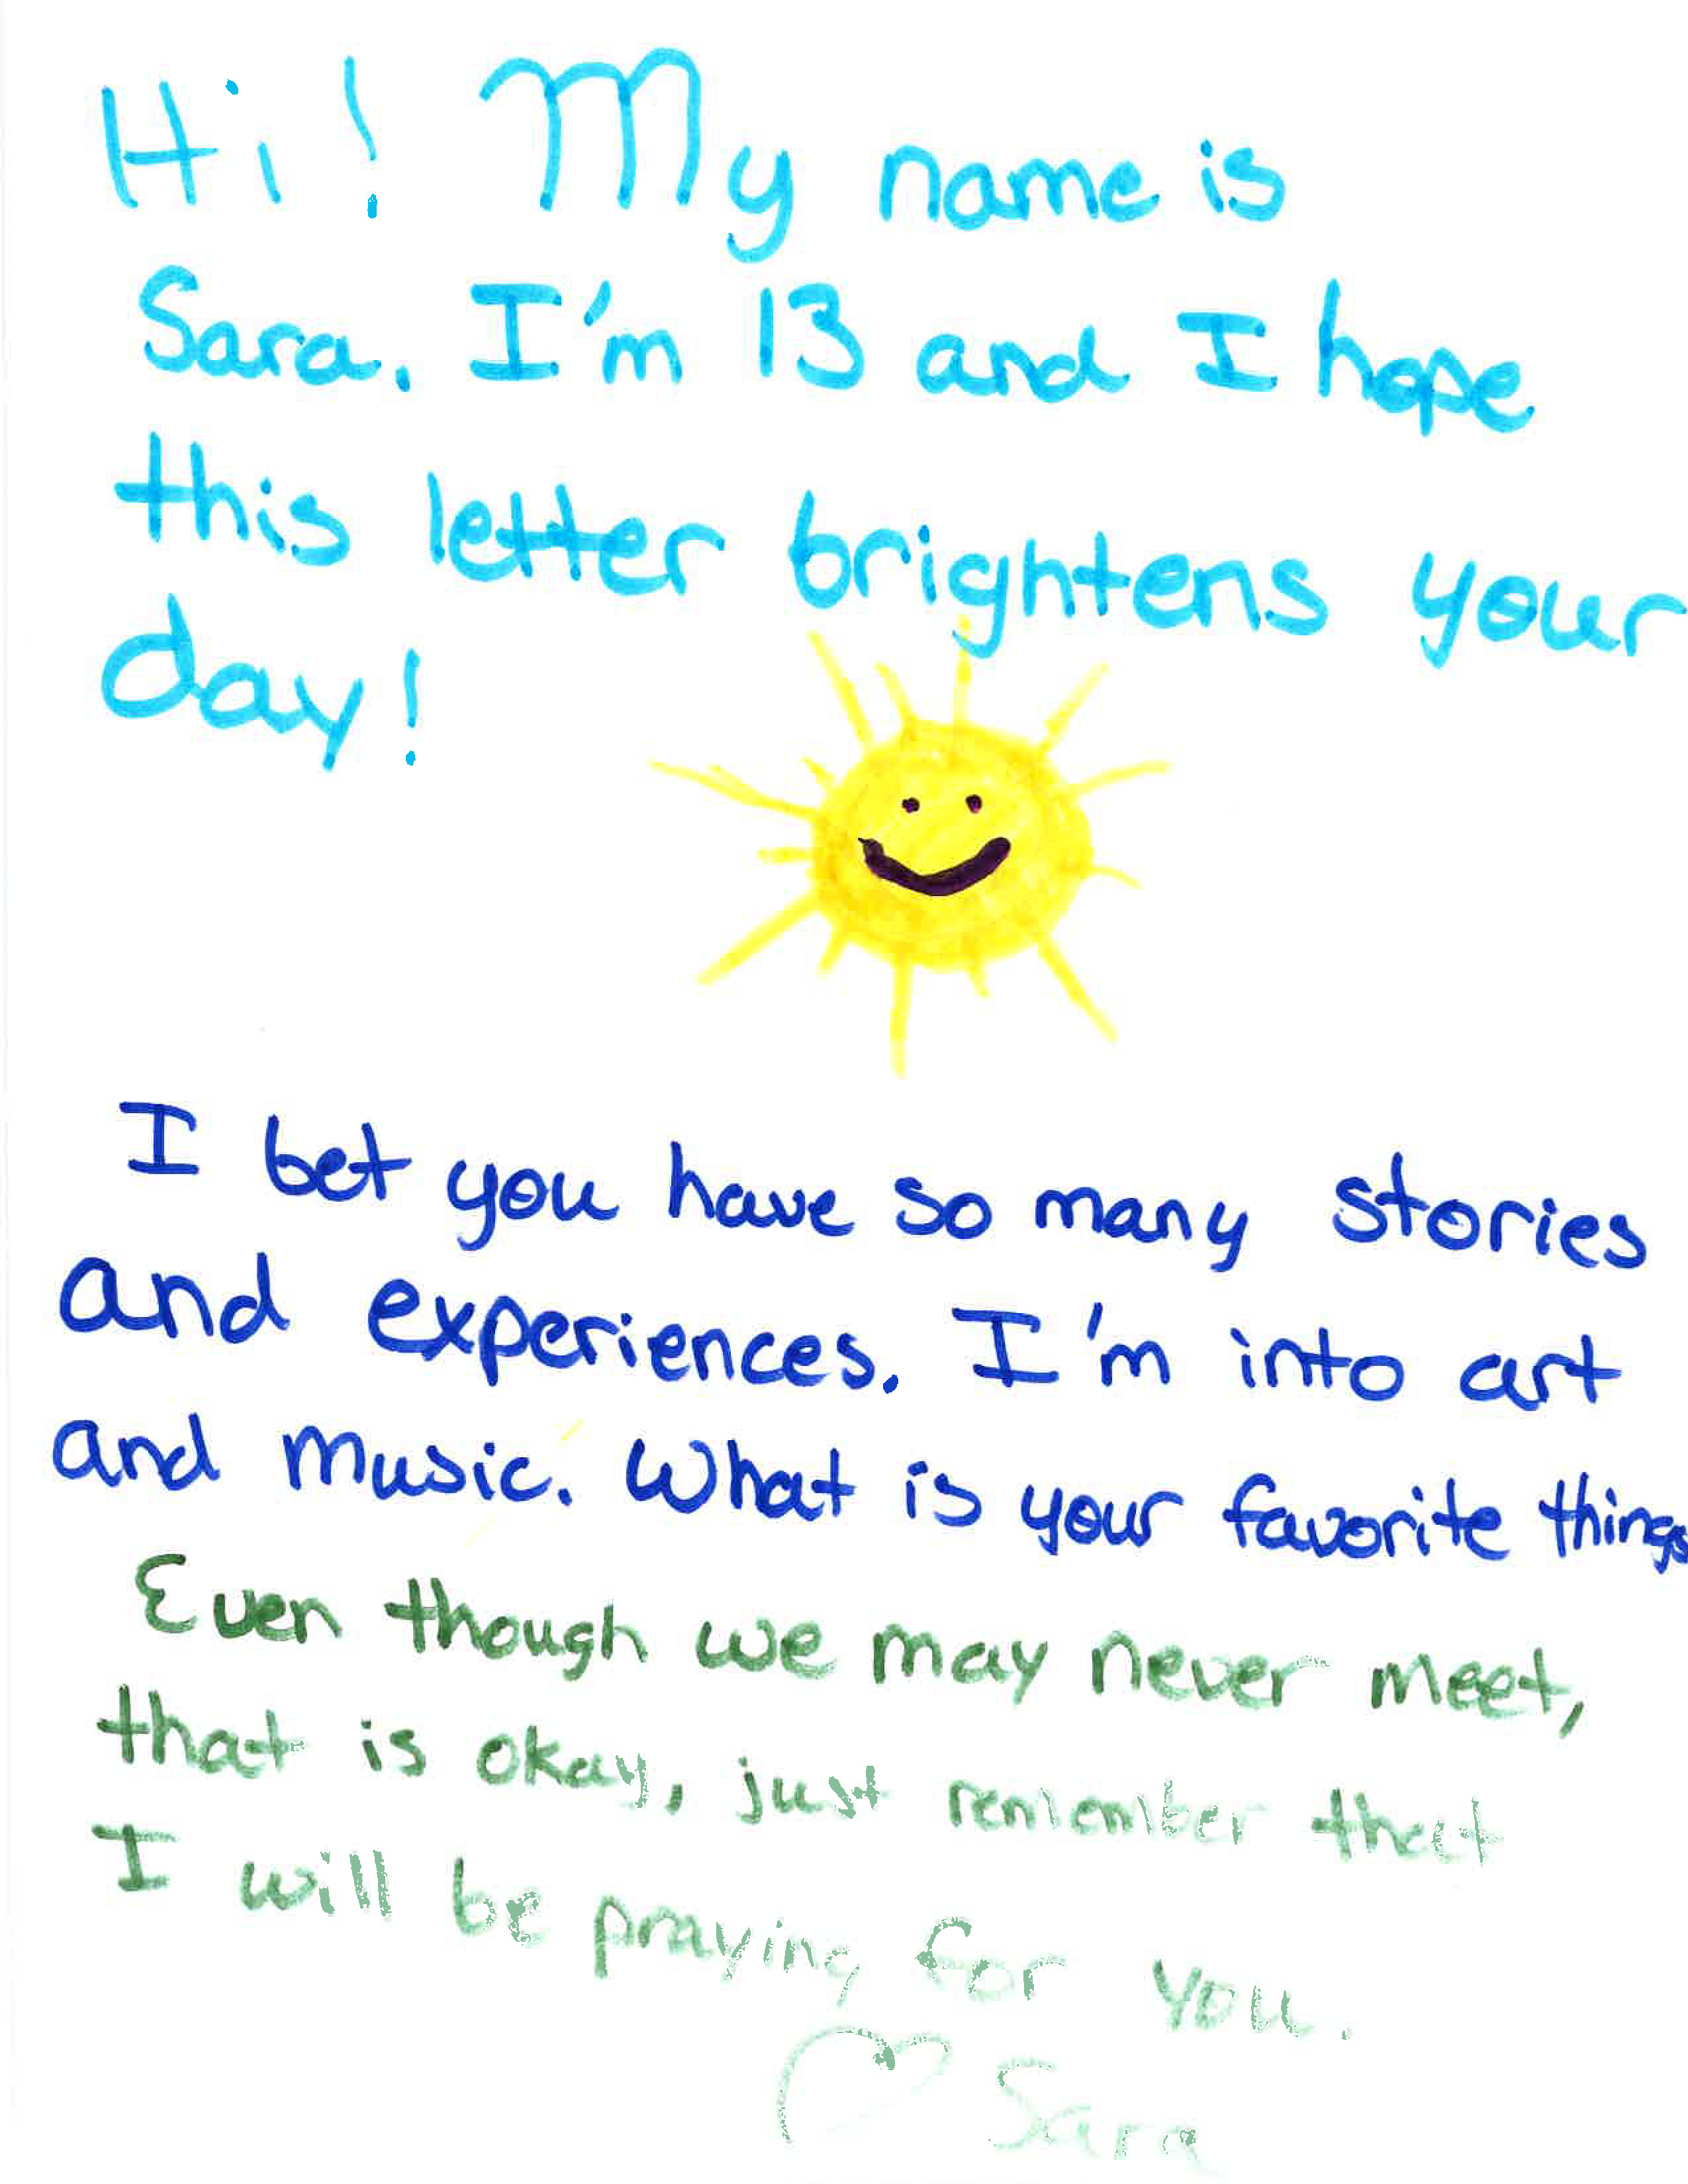 Hi! My name is
Sara. I'm 13 and I hope
this letter brightens your
day!
I bet you have so many stories
and experiences. I'm into art
and music. What is your favorite things
Even though we may never meet,
that is okay, just remember that
I will be praying for you.
♡ Sara